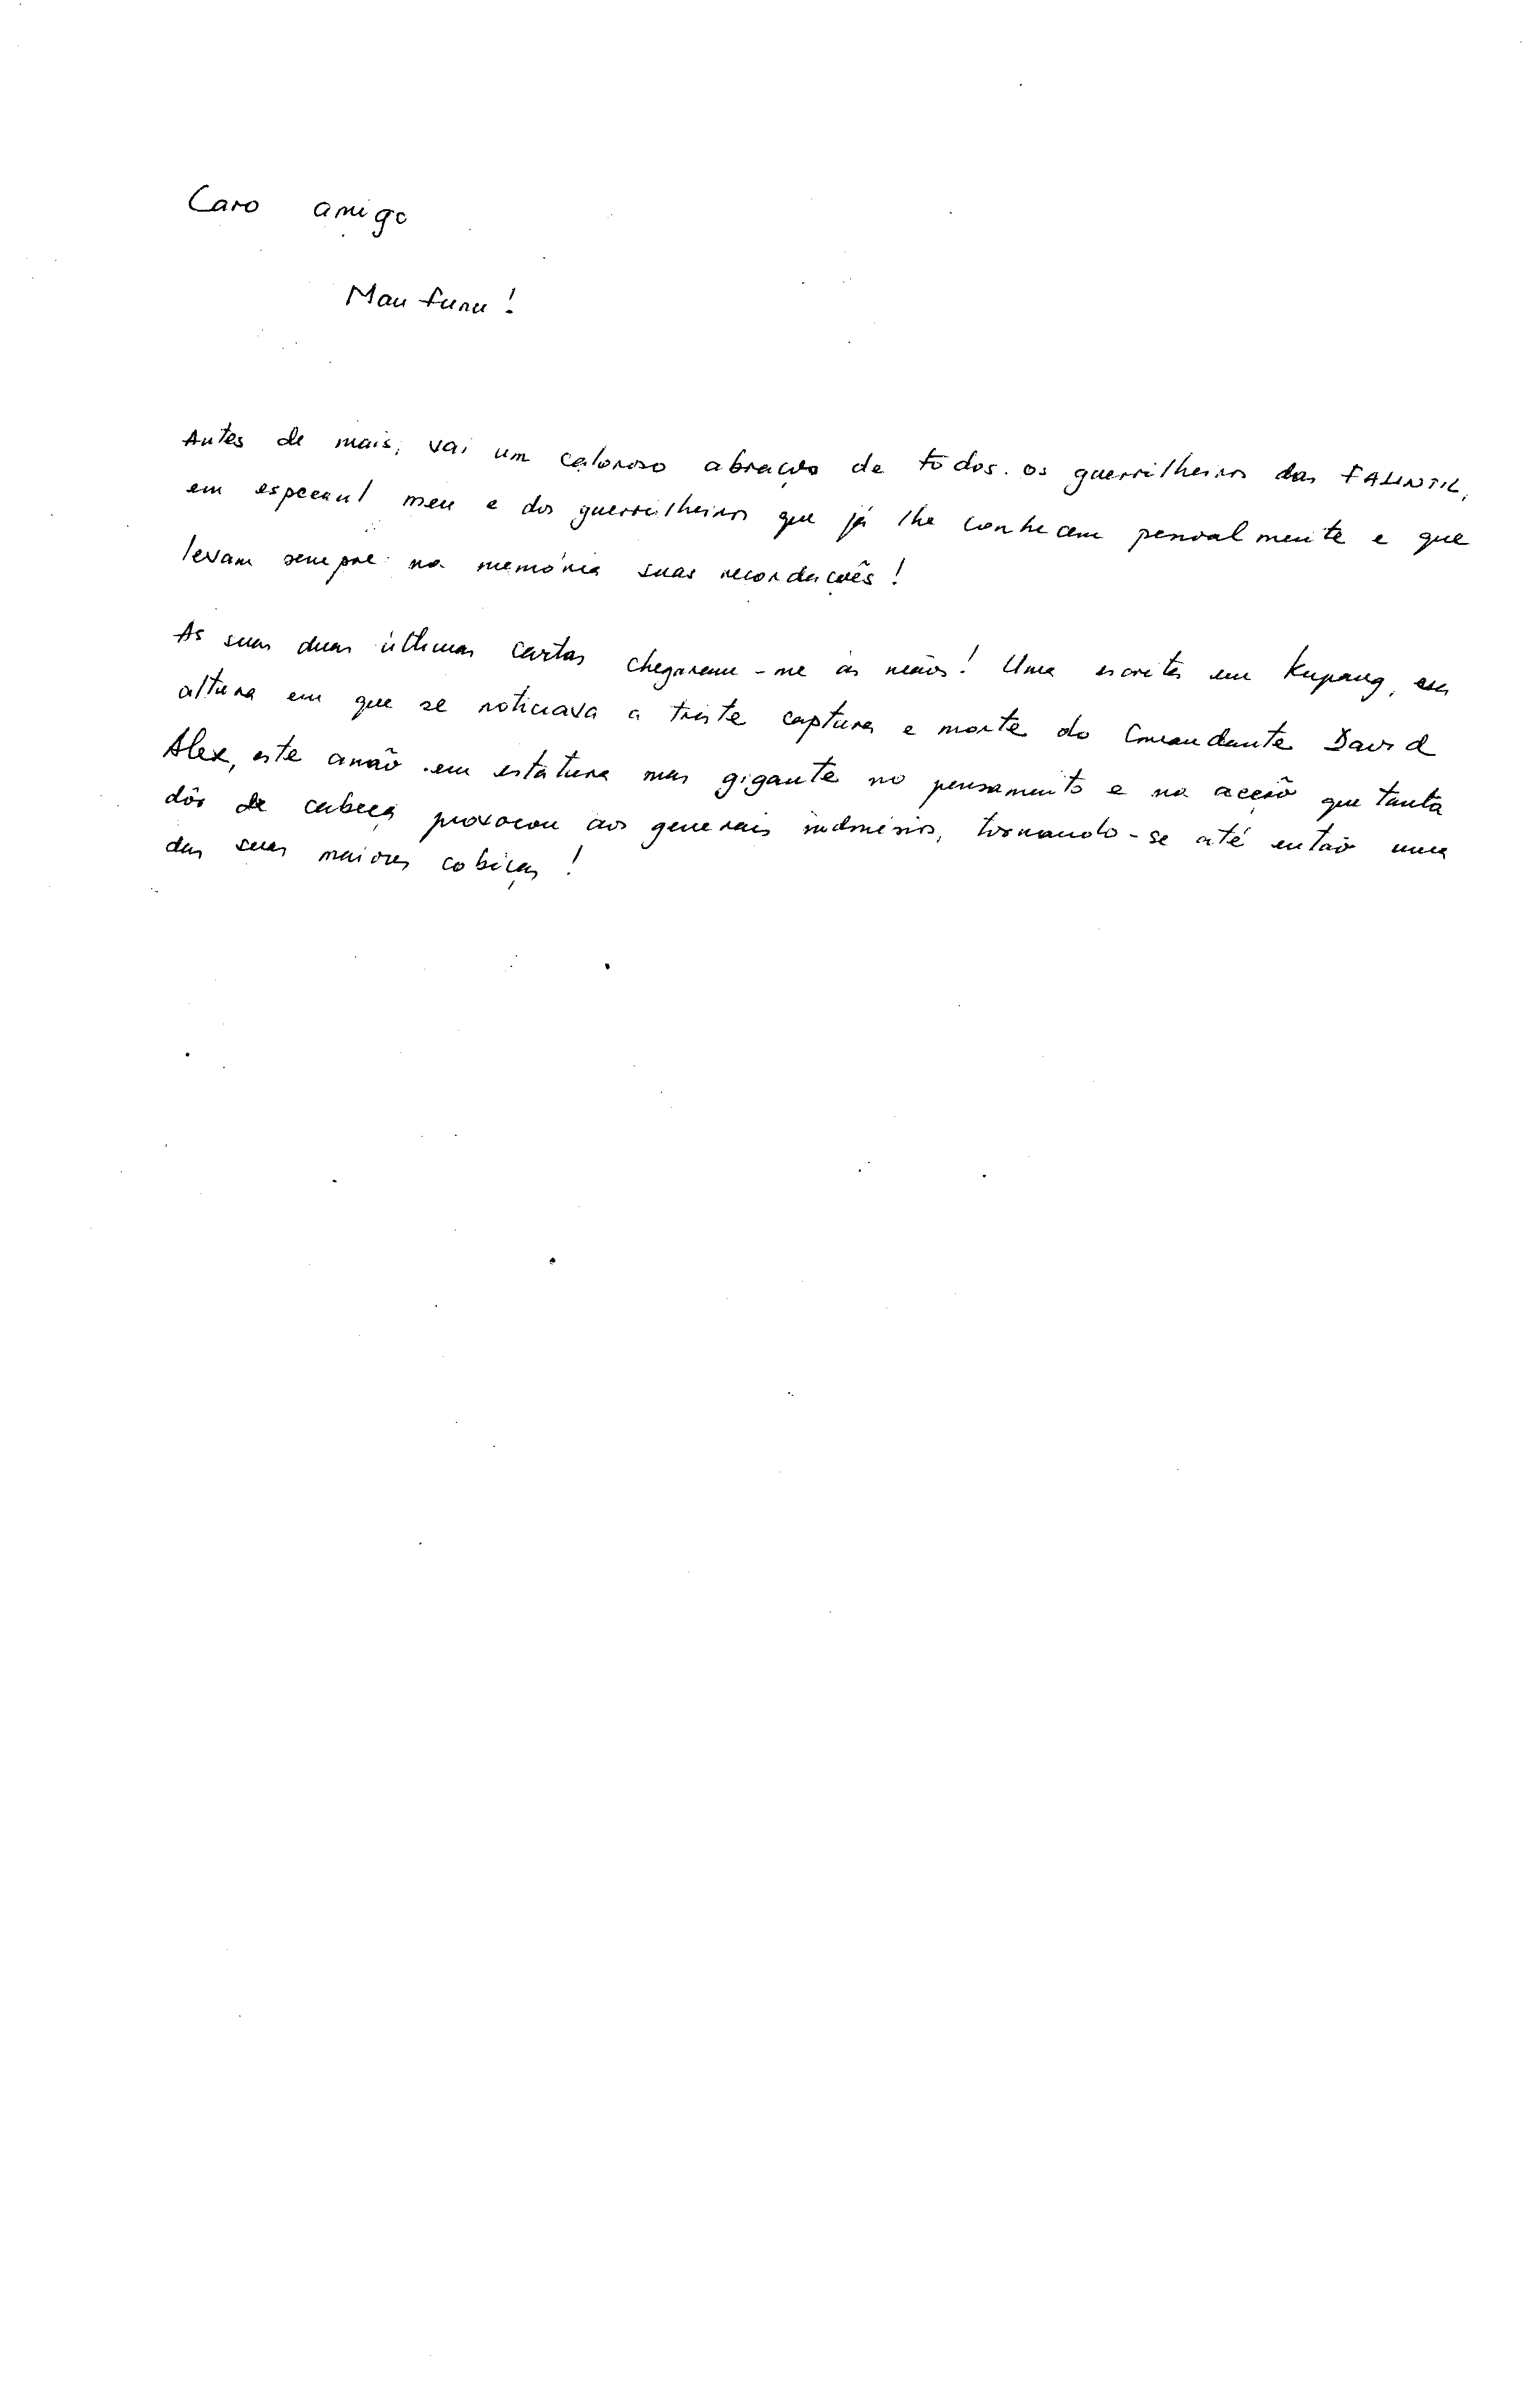 Caro amigo
Mau funu!
Antes de mais, vai um caloroso abraço de todos os guerrilheiros das FALINTIL,
em especial meu e dos guerrilheiros que já lhe conhecem pessoalmente e que
levam sempre na memória suas recordações!
As suas duas últimas cartas chegaram-me às mãos! Uma escrita em Kupang, na
altura em que se noticiava a triste captura e morte do Comandante David
Alex, este anão em estatura mas gigante no pensamento e na acção que tanta
dôr de cabeça provocou aos generais indonésios, tornando-se até então uma
das suas maiores cobiças!